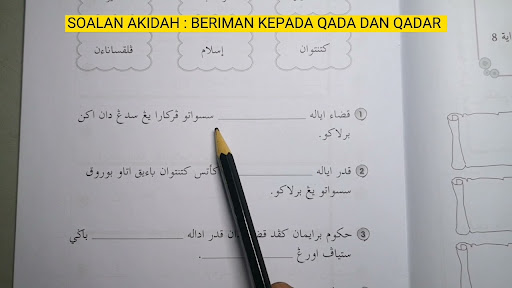 SOALAN AKIDAH : BERIMAN KEPADA QADA DAN QADAR
ڤلقساناءن
إسلام
كتنتوان
اية 8
1 قضاء اياله ____________ سسواتو ڤركارا يڠ سدڠ دان اكن
برلاكو.
2 قدر اياله ____________ كأتس كتنتوان باءيق اتاو بوروق
سسواتو يڠ برلاكو.
3 حكوم برايمان كڤد قضاء دان قدر اداله ____________ باݢي
ستياڤ اورڠ ____________.